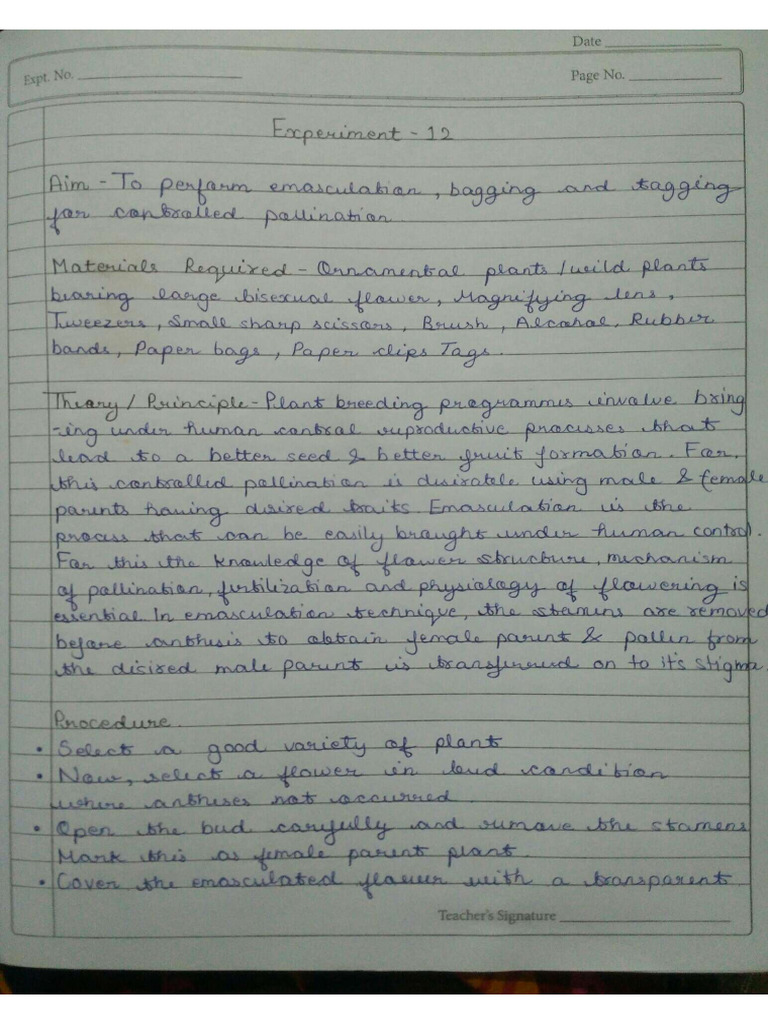 Date
Expt. No.
Page No.
Experiment - 12
Aim - To perform emasculation, bagging and tagging
for controlled pollination.
Materials Required - Ornamental plants/wild plants
bearing large bisexual flower, Magnifying lens,
Tweezers, Small sharp scissors, Brush, Alcohal, Rubber
bands, Paper bags, Paper clips Tags.
Theory / Principle - Plant breeding programmes involve bring
-ing under human control reproductive processes that
lead to a better seed & better fruit formation. For,
this controlled pollination is disirable using male & female
parents having desired traits. Emasculation is the
process that can be easily brought under human control.
For this the knowledge of flower structure, mechanism
of pollination, fertilization and physiology of flowering is
essential. In emasculation technique, the stamens are removed
before anthesis to obtain female parent & pollen from
the disired male parent is transferred on to it's stigma.
Procedure.
• Select a good variety of plant
• Now, select a flower in bud condition
where antheses not occurred.
• Open the bud carefully and remove the stamens
Mark this as female parent plant.
• Cover the emasculated flower with a transparent
Teacher's Signature